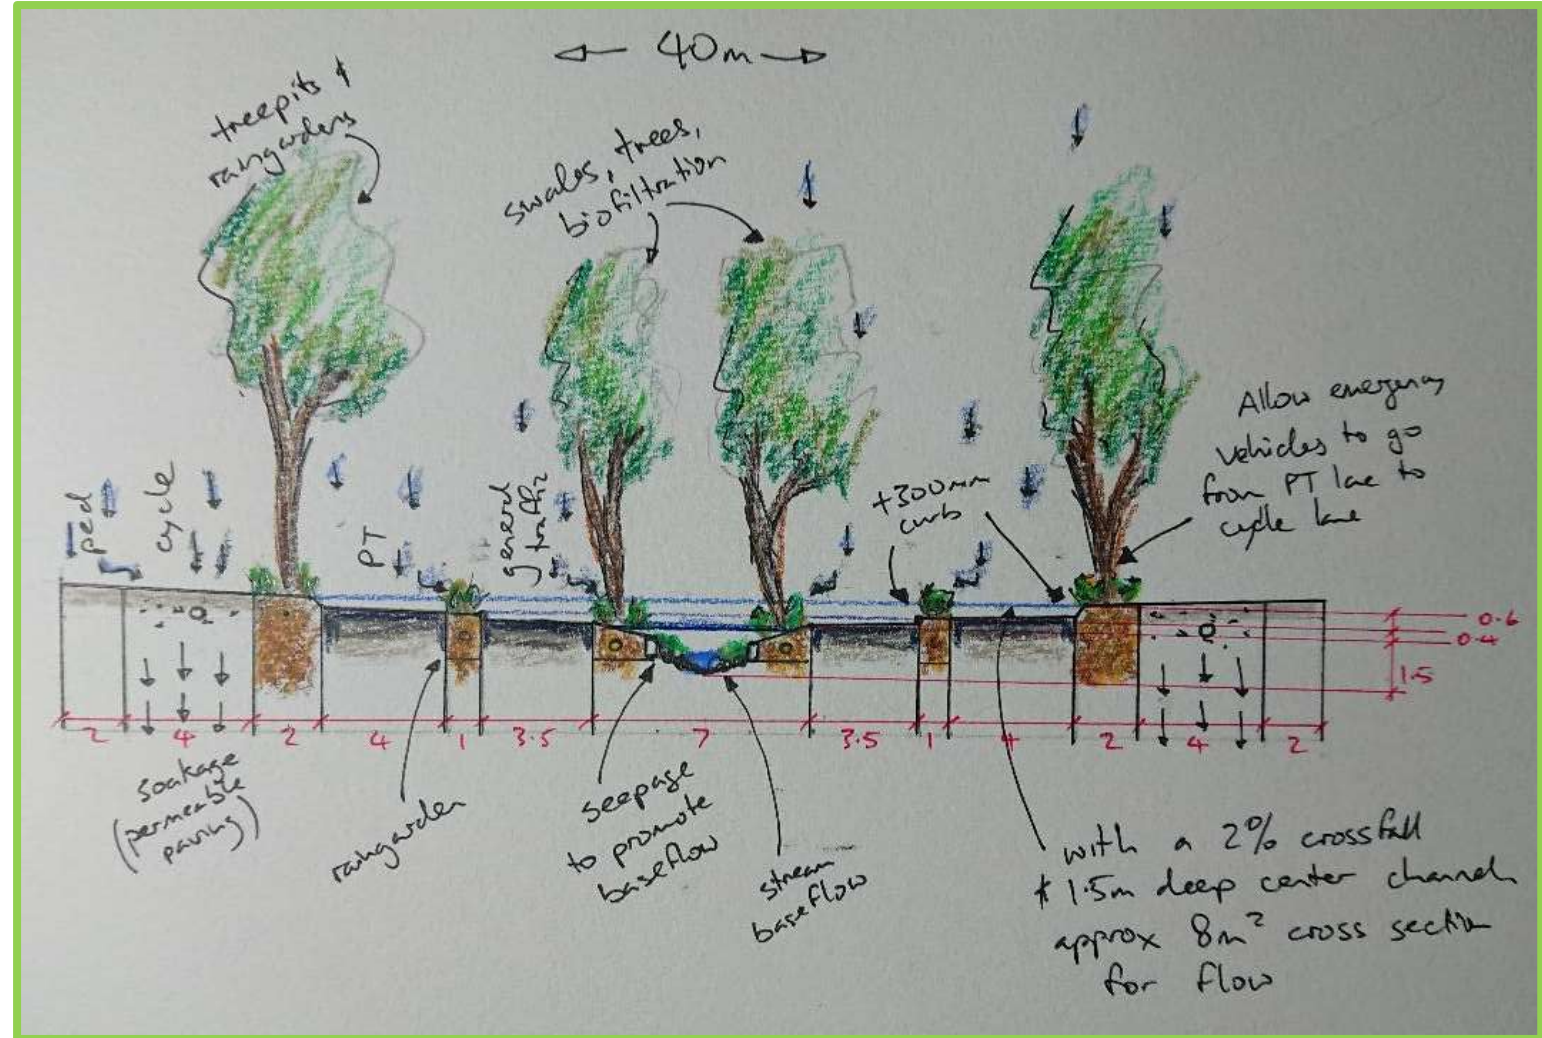 40m
treepits &
raingardens
swales, trees,
biofiltration
Allow emergency
vehicles to go
from PT lane to
cycle lane
+300mm
curb
ped
cycle
PT
general
traffic
0.6
0.4
1.5
2
4
2
4
1
3.5
7
3.5
1
4
2
4
2
soakage
(permeable
paving)
raingarden
seepage
to promote
baseflow
stream
baseflow
with a 2% crossfall
& 1.5m deep center channel
approx 8m² cross section
for flow